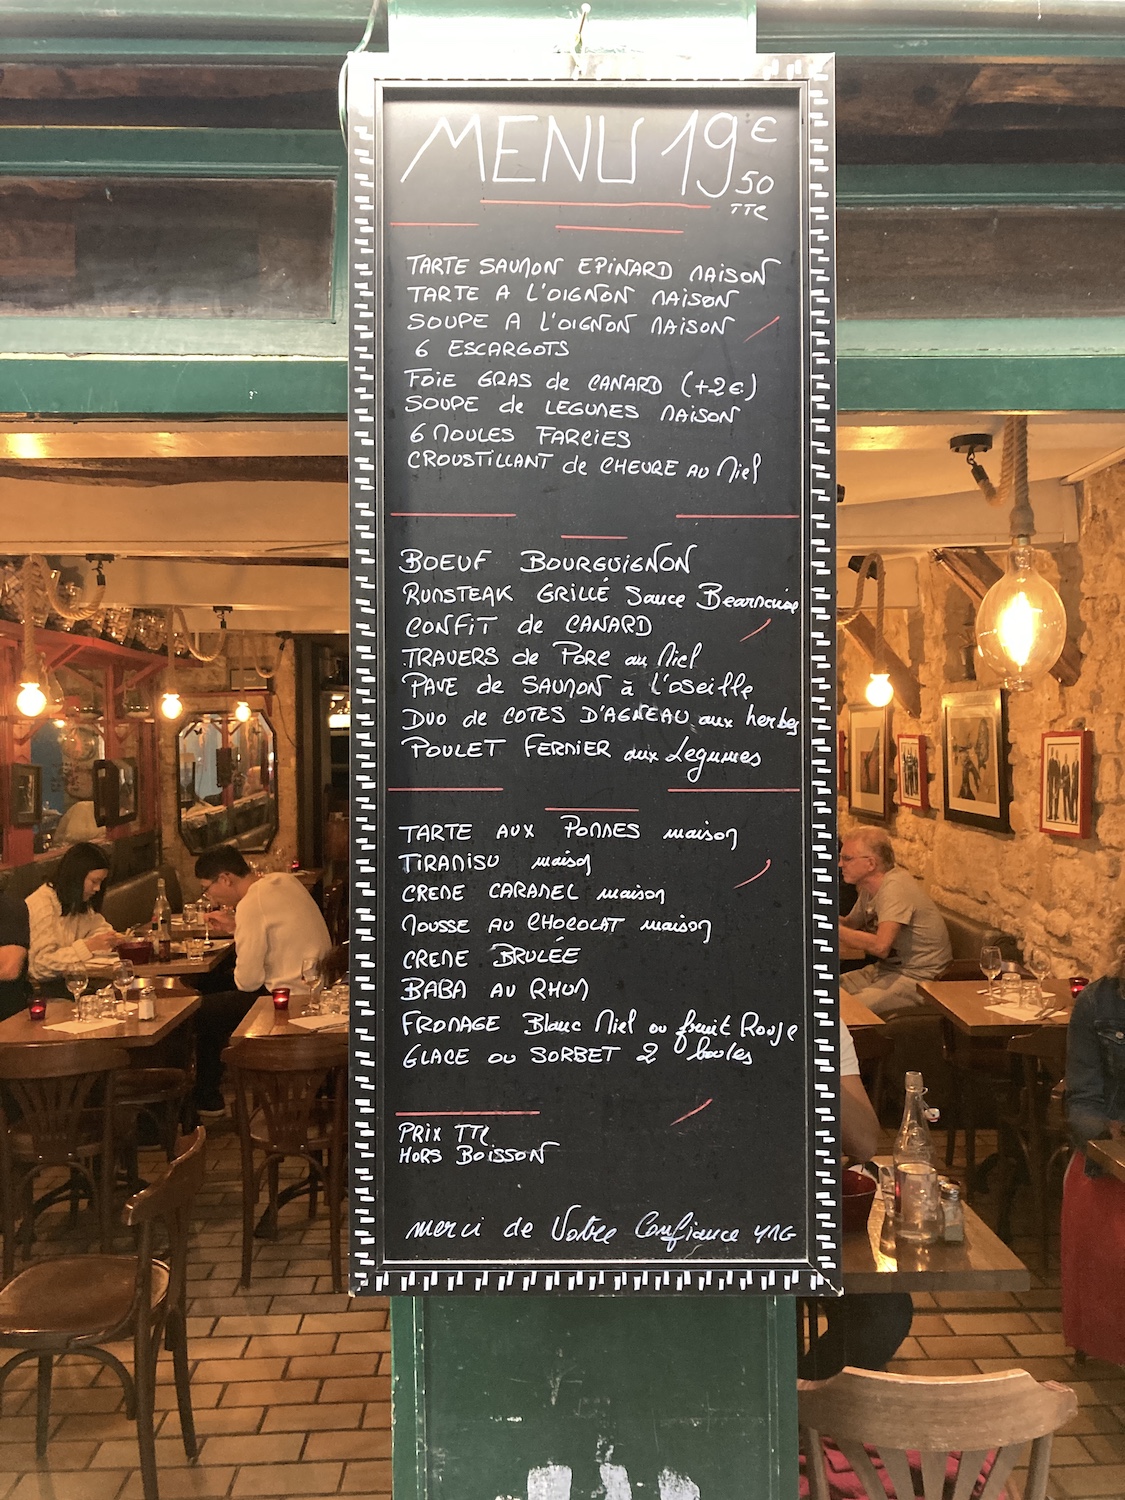 MENU 19€
50
TTC
TARTE SAUMON EPINARD MAISON
TARTE A L'OIGNON MAISON
SOUPE A L'OIGNON MAISON
6 ESCARGOTS
FOIE GRAS de CANARD (+2€)
SOUPE de LEGUMES MAISON
6 MOULES FARCIES
CROUSTILLANT de CHEVRE AU Miel
BOEUF BOURGUIGNON
RUMSTEAK GRILLÉ Sauce Bearnaise
CONFIT de CANARD
TRAVERS de PORC au Miel
PAVE de SAUMON à L'oseille
DUO de COTES D'AGNEAU aux herbes
POULET FERMIER aux Legumes
TARTE AUX POMMES maison
TIRAMISU maison
CREME CARAMEL maison
MOUSSE AU CHOCOLAT maison
CREME BRULÉE
BABA AU RHUM
FROMAGE Blanc Miel ou fruit Rouge
GLACE ou SORBET 2 boules
PRIX TTC
HORS BOISSON
merci de Votre Confiance